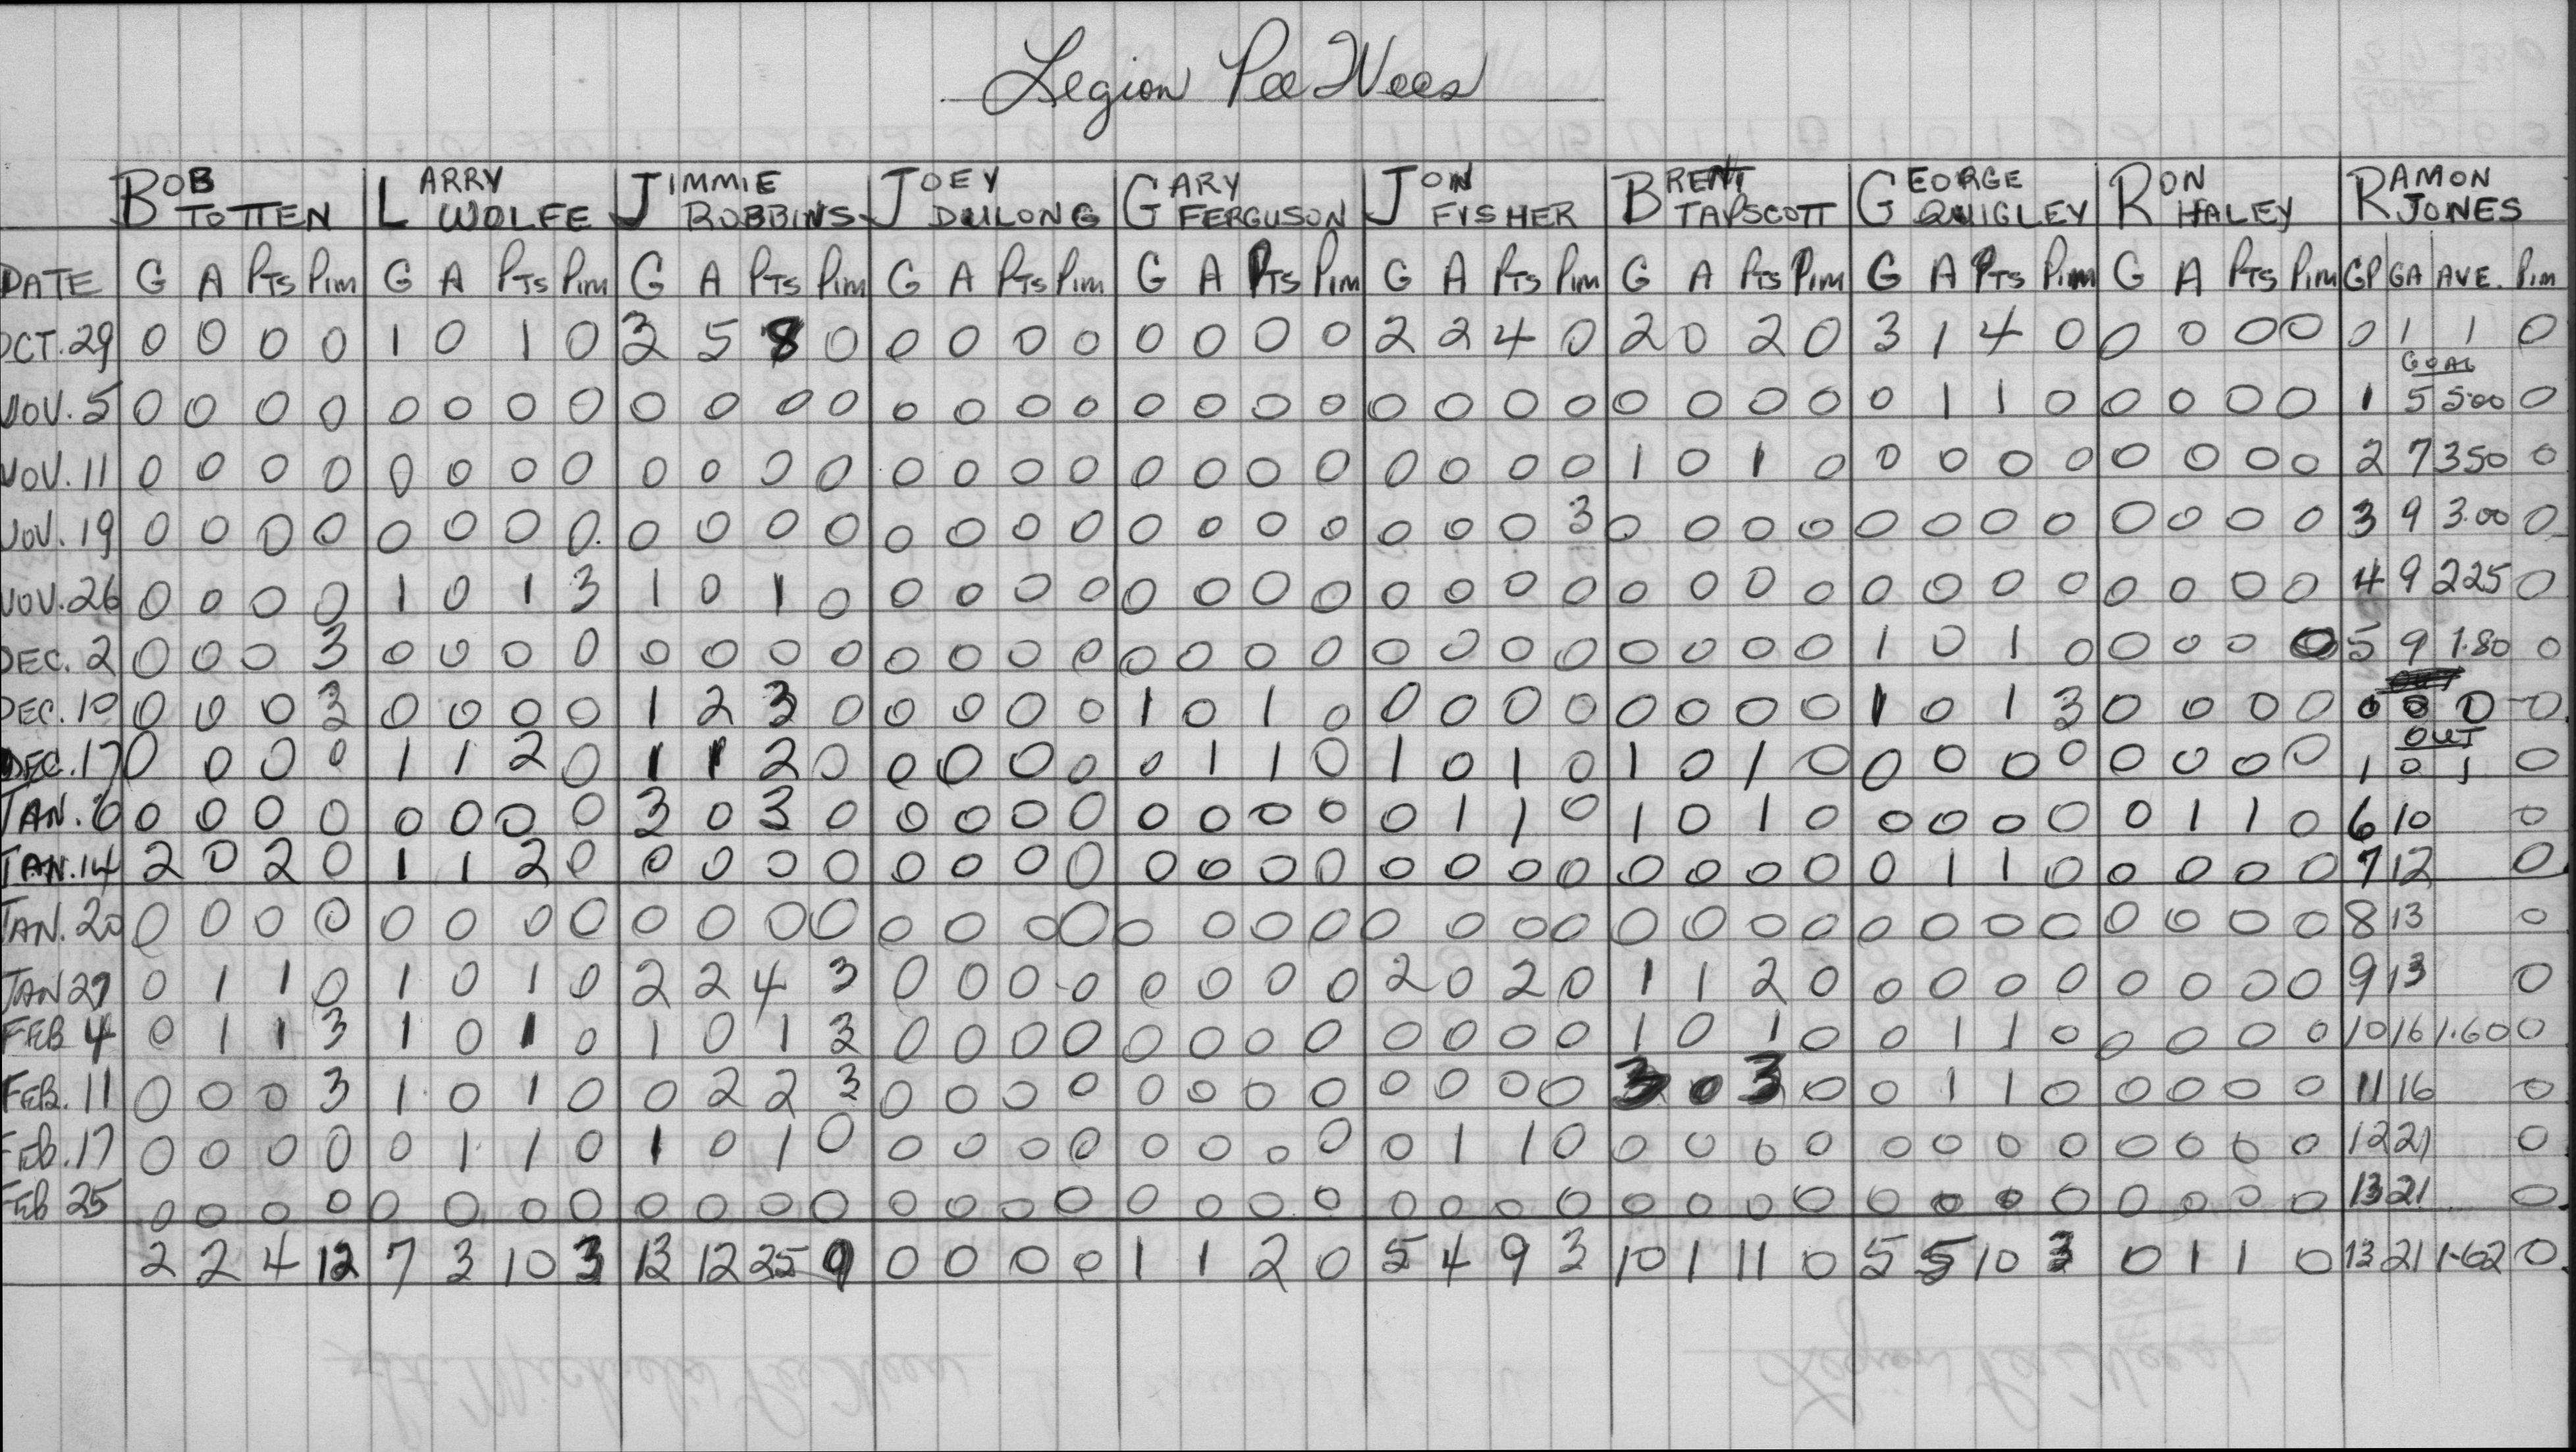 Legion Pee Wees
BOB TOTTEN LARRY WOLFE JIMMIE ROBBINS JOEY DULONG GARY FERGUSON JON FISHER BRENT TAPSCOTT GEORGE QUIGLEY RON HALEY RAMON JONES
DATE G A PTS PIM G A PTS PIM G A PTS PIM G A PTS PIM G A PTS PIM G A PTS PIM G A PTS PIM G A PTS PIM G A PTS PIM GP GA AVE. PIM
OCT. 29 0 0 0 0 1 0 1 0 3 5 8 0 0 0 0 0 0 0 0 0 2 2 4 0 2 0 2 0 3 1 4 0 0 0 0 0 0 1 1 0
GOAL
NOV. 5 0 0 0 0 0 0 0 0 0 0 0 0 0 0 0 0 0 0 0 0 0 0 0 0 0 0 0 0 0 1 1 0 0 0 0 0 1 5 5.00 0
NOV. 11 0 0 0 0 0 0 0 0 0 0 0 0 0 0 0 0 0 0 0 0 0 0 0 0 1 0 1 0 0 0 0 0 0 0 0 0 2 7 350 0
NOV. 19 0 0 0 0 0 0 0 0 0 0 0 0 0 0 0 0 0 0 0 0 0 0 0 3 0 0 0 0 0 0 0 0 0 0 0 0 3 9 3.00 0
NOV. 26 0 0 0 0 1 0 1 3 1 0 1 0 0 0 0 0 0 0 0 0 0 0 0 0 0 0 0 0 0 0 0 0 0 0 0 0 4 9 225 0
DEC. 2 0 0 0 3 0 0 0 0 0 0 0 0 0 0 0 0 0 0 0 0 0 0 0 0 0 0 0 0 1 0 1 0 0 0 0 0 5 9 1.80 0
DEC. 10 0 0 0 3 0 0 0 0 1 2 3 0 0 0 0 0 1 0 1 0 0 0 0 0 0 0 0 0 1 0 1 3 0 0 0 0 0 0 0 0
OUT
DEC. 17 0 0 0 0 1 1 2 0 1 1 2 0 0 0 0 0 0 1 1 0 1 0 1 0 1 0 1 0 0 0 0 0 0 0 0 0 1 0 1 0
JAN. 6 0 0 0 0 0 0 0 0 3 0 3 0 0 0 0 0 0 0 0 0 0 1 1 0 1 0 1 0 0 0 0 0 0 1 1 0 6 10 0
JAN. 14 2 0 2 0 1 1 2 0 0 0 0 0 0 0 0 0 0 0 0 0 0 0 0 0 0 0 0 0 0 1 1 0 0 0 0 0 7 12 0
JAN. 20 0 0 0 0 0 0 0 0 0 0 0 0 0 0 0 0 0 0 0 0 0 0 0 0 0 0 0 0 0 0 0 0 0 0 0 0 8 13 0
JAN 27 0 1 1 0 1 0 1 0 2 2 4 3 0 0 0 0 0 0 0 0 2 0 2 0 1 1 2 0 0 0 0 0 0 0 0 0 9 13 0
FEB 4 0 1 1 3 1 0 1 0 1 0 1 3 0 0 0 0 0 0 0 0 0 0 0 0 1 0 1 0 0 1 1 0 0 0 0 0 10 16 1.60 0
FEB. 11 0 0 0 3 1 0 1 0 0 2 2 3 0 0 0 0 0 0 0 0 0 0 0 0 3 0 3 0 0 1 1 0 0 0 0 0 11 16 0
Feb. 17 0 0 0 0 0 1 1 0 1 0 1 0 0 0 0 0 0 0 0 0 0 1 1 0 0 0 0 0 0 0 0 0 0 0 0 0 12 21 0
Feb 25 0 0 0 0 0 0 0 0 0 0 0 0 0 0 0 0 0 0 0 0 0 0 0 0 0 0 0 0 0 0 0 0 0 0 0 0 13 21 0
2 2 4 12 7 3 10 3 13 12 25 9 0 0 0 0 1 1 2 0 5 4 9 3 10 1 11 0 5 5 10 3 0 1 1 0 13 21 1.62 0